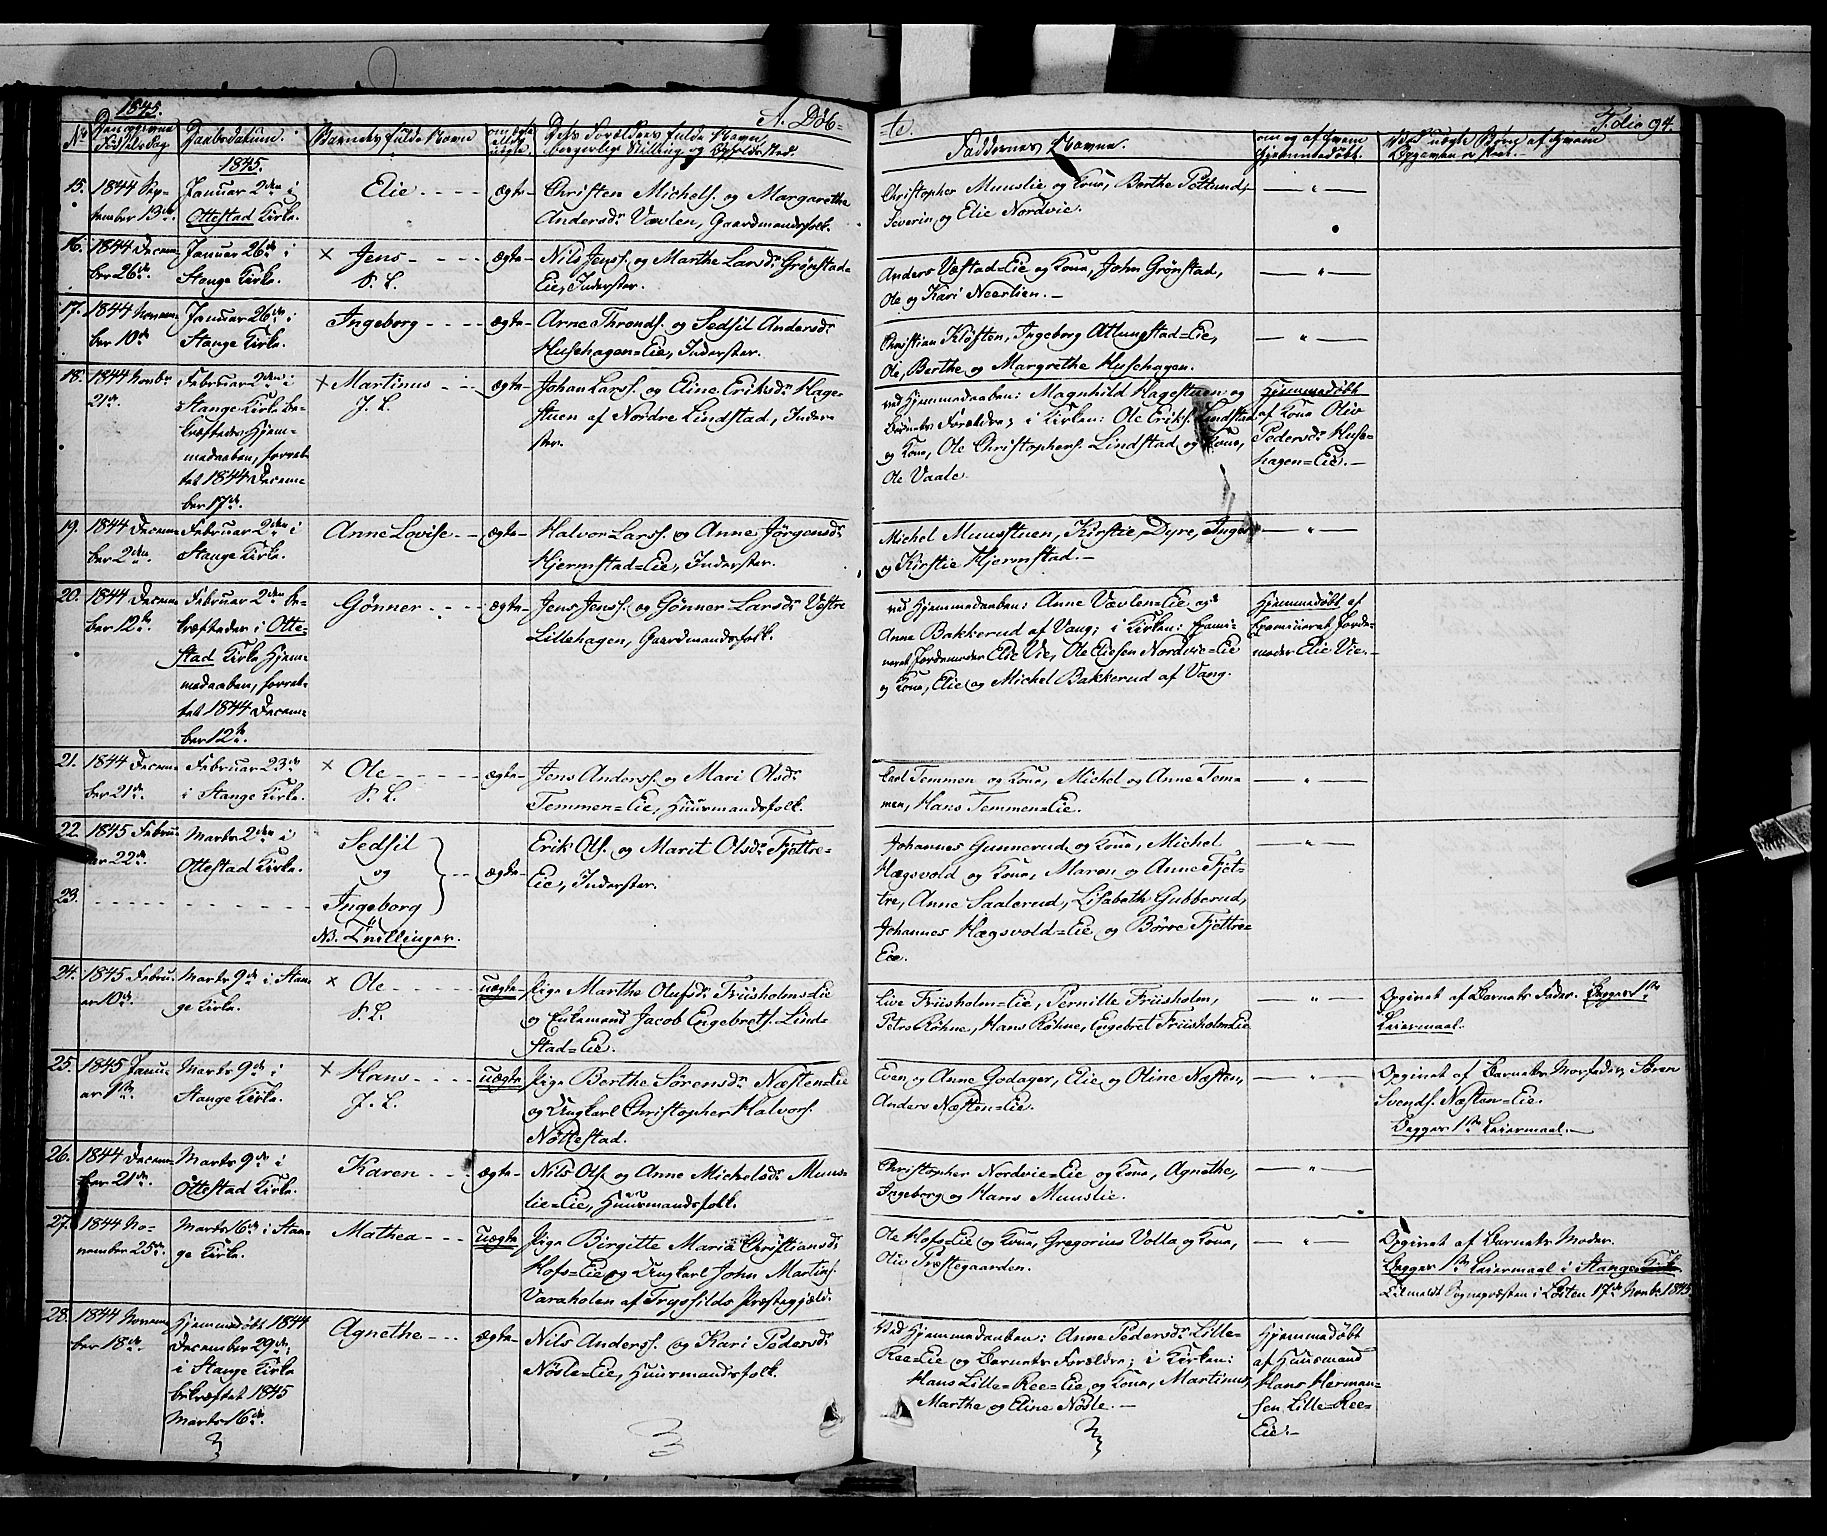 1845.
A. Döb=
=te.
Folio 94.
No
Den opgivne Fødselsdag
Daabsdatum.
Barnets fulde Navn
om ægte eller uægte
Dets Forældres fulde Navn, borgerlige Stilling og Opholdssted.
Faddernes Navne.
om og af hvem hjemmedøbt.
Ved uægte Børn af hvem Opgaven er skeet.
1845.
15.
1844 Sep-
tember 19de
Januar 2den i
Ottestad Kirke.
Elie
ægte
Christen Michels. og Margarethe
Andersdr Vævlen, Gaardmandsfolk.
Christopher Muuslie og Kone, Berthe
Severin og Elie Nordvie.
16.
1844 Decem-
ber 26de
Januar 26de i
Stange Kirke.
× Jens
S. L.
ægte
Nils Jenss. og Marthe Larsdr Grønstad=
Eie, Inderster.
Anders Væstad=Eie og Kone, John Grønstad,
Ole og Kari Neerlien.
17.
1844 Novem-
ber 10de
Januar 26de i
Stange Kirke.
Ingeborg
ægte
Arne Thronds. og Sedsil Andersdr
Husehagen=Eie, Inderster.
Christian Kløften, Ingeborg Atlungstad=Eie,
Ole, Berthe og Margrethe Husehagen.
18.
1844 Novbr
21de.
Februar 2den i
Stange Kirke be-
kræftedes Hjem-
medaaben, forret-
tet 1844 Decem-
ber 17de.
× Martinus
J. L.
ægte
Johan Larss. og Eline Eriksdr Hage-
stuen af Nordre Lindstad, Inder-
ster.
ved Hjemmedaaben: Magnhild Hagestuen og
Barnets Forældre; i Kirken: Ole Eriks. Lindstad
og Kone, Ole Christophers. Lindstad og Kone,
Ole Vaale.
Hjemmedøbt
af Kone Oliv
Pedersdr Huse-
hagen=Eie.
19.
1844 Decem-
ber 2den.
Februar 2den i
Stange Kirke.
Anne Lovise
ægte
Halvor Larss. og Anne Jörgensdr
Hjermstad=Eie, Inderster.
Michel Muusstuen, Kirstie Dyre, Inger
og Kirstie Hjermstad.
20.
1844 Decem-
ber 12te.
Februar 2den be-
kræftedes i Otte-
stad Kirke Hjem-
medaaben, forret-
tet 1844 Decem-
ber 12te.
Gönner
ægte
Jens Jenss. og Gönner Larsdr Vestre
Lillehagen, Gaardmandsfolk.
ved Hjemmedaaben: Anne Vævlen=Eie og
Anne Bakkerud af Vang; i Kirken: Exami-
neret Jordemoder Elie Vie, Ole Eliesen Nordvie=Eie
og Kone, Elie og Michel Bakkerud af Vang.
Hjemmedøbt af
Examineret Jorde-
moder Elie Vie.
21.
1844 Decem-
ber 21de.
Februar 23de
i Stange Kirke.
× Ole
S. L.
ægte
Jens Anderss. og Mari Olsdr
Temmen=Eie, Huusmandsfolk.
Carl Temmen og Kone, Michel og Anne Tem-
men, Hans Temmen=Eie.
22.
23.
1845 Febru-
ar 22de.
Marts 2den i
Ottestad Kirke.
Sedsil
og
Ingeborg
NB. Tvillinger.
ægte
Erik Ols. og Marit Olsdr Fjettre=
Eie, Inderster.
Johannes Gunnerud og Kone, Michel
Hægsvold og Kone, Maren og Anne Fjet-
tre, Anne Saalerud, Lisabeth Gubberud,
Johannes Hægsvold=Eie og Börre Fjettre=
Eie.
24.
1845 Febru-
ar 10de.
Marts 9de i Stan-
ge Kirke.
× Ole
S. L.
uægte
Pige Marthe Olufsdr Friisholm=Eie
og Enkemand Jacob Engebrets. Lind-
stad=Eie.
Live Friisholm=Eie, Pernille Friisholm,
Petro Röhne, Hans Röhne, Engebret Friisholm=Eie
Opgivet af Barnets Fader. Begges 1ste
Leiermaal.
25.
1845 Janu-
ar 1ste.
Marts 9de i
Stange Kirke.
× Hans
J. L.
uægte
Pige Berthe Sörensdr Næsten=Eie
og Ungkarl Christopher Halvors.
Nöttestad.
Even og Anne Godager, Elie og Oline Næsten,
Anders Næsten=Eie.
Opgivet af Barnets Morfader, Sören
Svends. Næsten=Eie.
Begges 1ste Leiermaal.
26.
1844 Decem-
ber 21de.
Marts 9de i
Ottestad Kirke.
Karen
ægte
Nils Ols. og Anne Michelsdr Muus-
lie=Eie, Huusmandsfolk.
Christopher Nordvie=Eie og Kone, Agnethe,
Ingeborg og Hans Muuslie.
27.
1844 No-
vember 25de.
Marts 16de i Stan-
ge Kirke.
Mathea
uægte
Pige Birgitte Maria Christiansdr
Hofs=Eie og Ungkarl John Martins.
Varaholen af Trysilds Præstegjeld.
Ole Hofs=Eie og Kone, Gregorius Volla og Kone,
Oliv Præstegaarden.
Opgivet af Barnets Moder.
Begges 1ste Leiermaal i Stange
Tilmeldt Sognepræsten i Løiten 17de Novbr 1845
28.
1844 Novem-
ber 18de.
Hjemmedøbt 1844
December 29de;
i Stange Kirke
bekræftet 1845
Marts 16de.
Agnethe
ægte
Nils Anderss. og Kari Pedersdr
Nösle=Eie, Huusmandsfolk.
Ved Hjemmedaaben: Anne Pedersdr Lille-
Ree=Eie og Barnets Forældre; i Kirken:
Hans Lille=Ree=Eie og Kone, Martinus,
Marthe og Eline Nösle.
Hjemmedøbt
af Huusmand
Hans Herman-
sen Lille=Ree=
Eie.